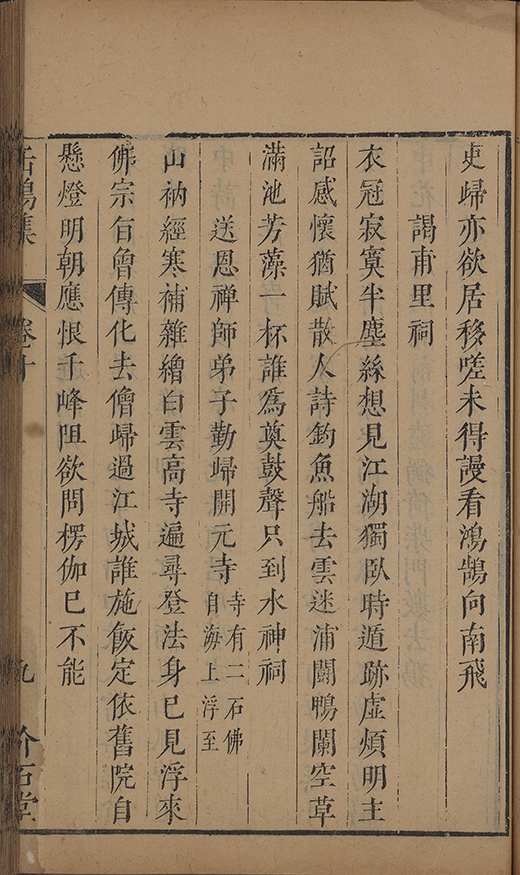 吏歸亦欲居移嗟未得謾看鴻鵠向南飛
謁甫里祠
衣冠寂寞半塵絲想見江湖獨臥時遁跡虛煩明主
詔感懷猶賦散人詩釣魚船去雲迷浦鬬鴨闌空草
滿池芳藻一杯誰爲奠鼓聲只到水神祠
送恩禪師弟子勤歸開元寺寺有二石佛
自海上浮至
山衲經寒補雜繒白雲高寺遍尋登法身已見浮來
佛宗旨曾傳化去僧歸過江城誰施飯定依舊院自
懸燈明朝應恨千峰阻欲問楞伽已不能
鳴集
卷十
九
介石堂